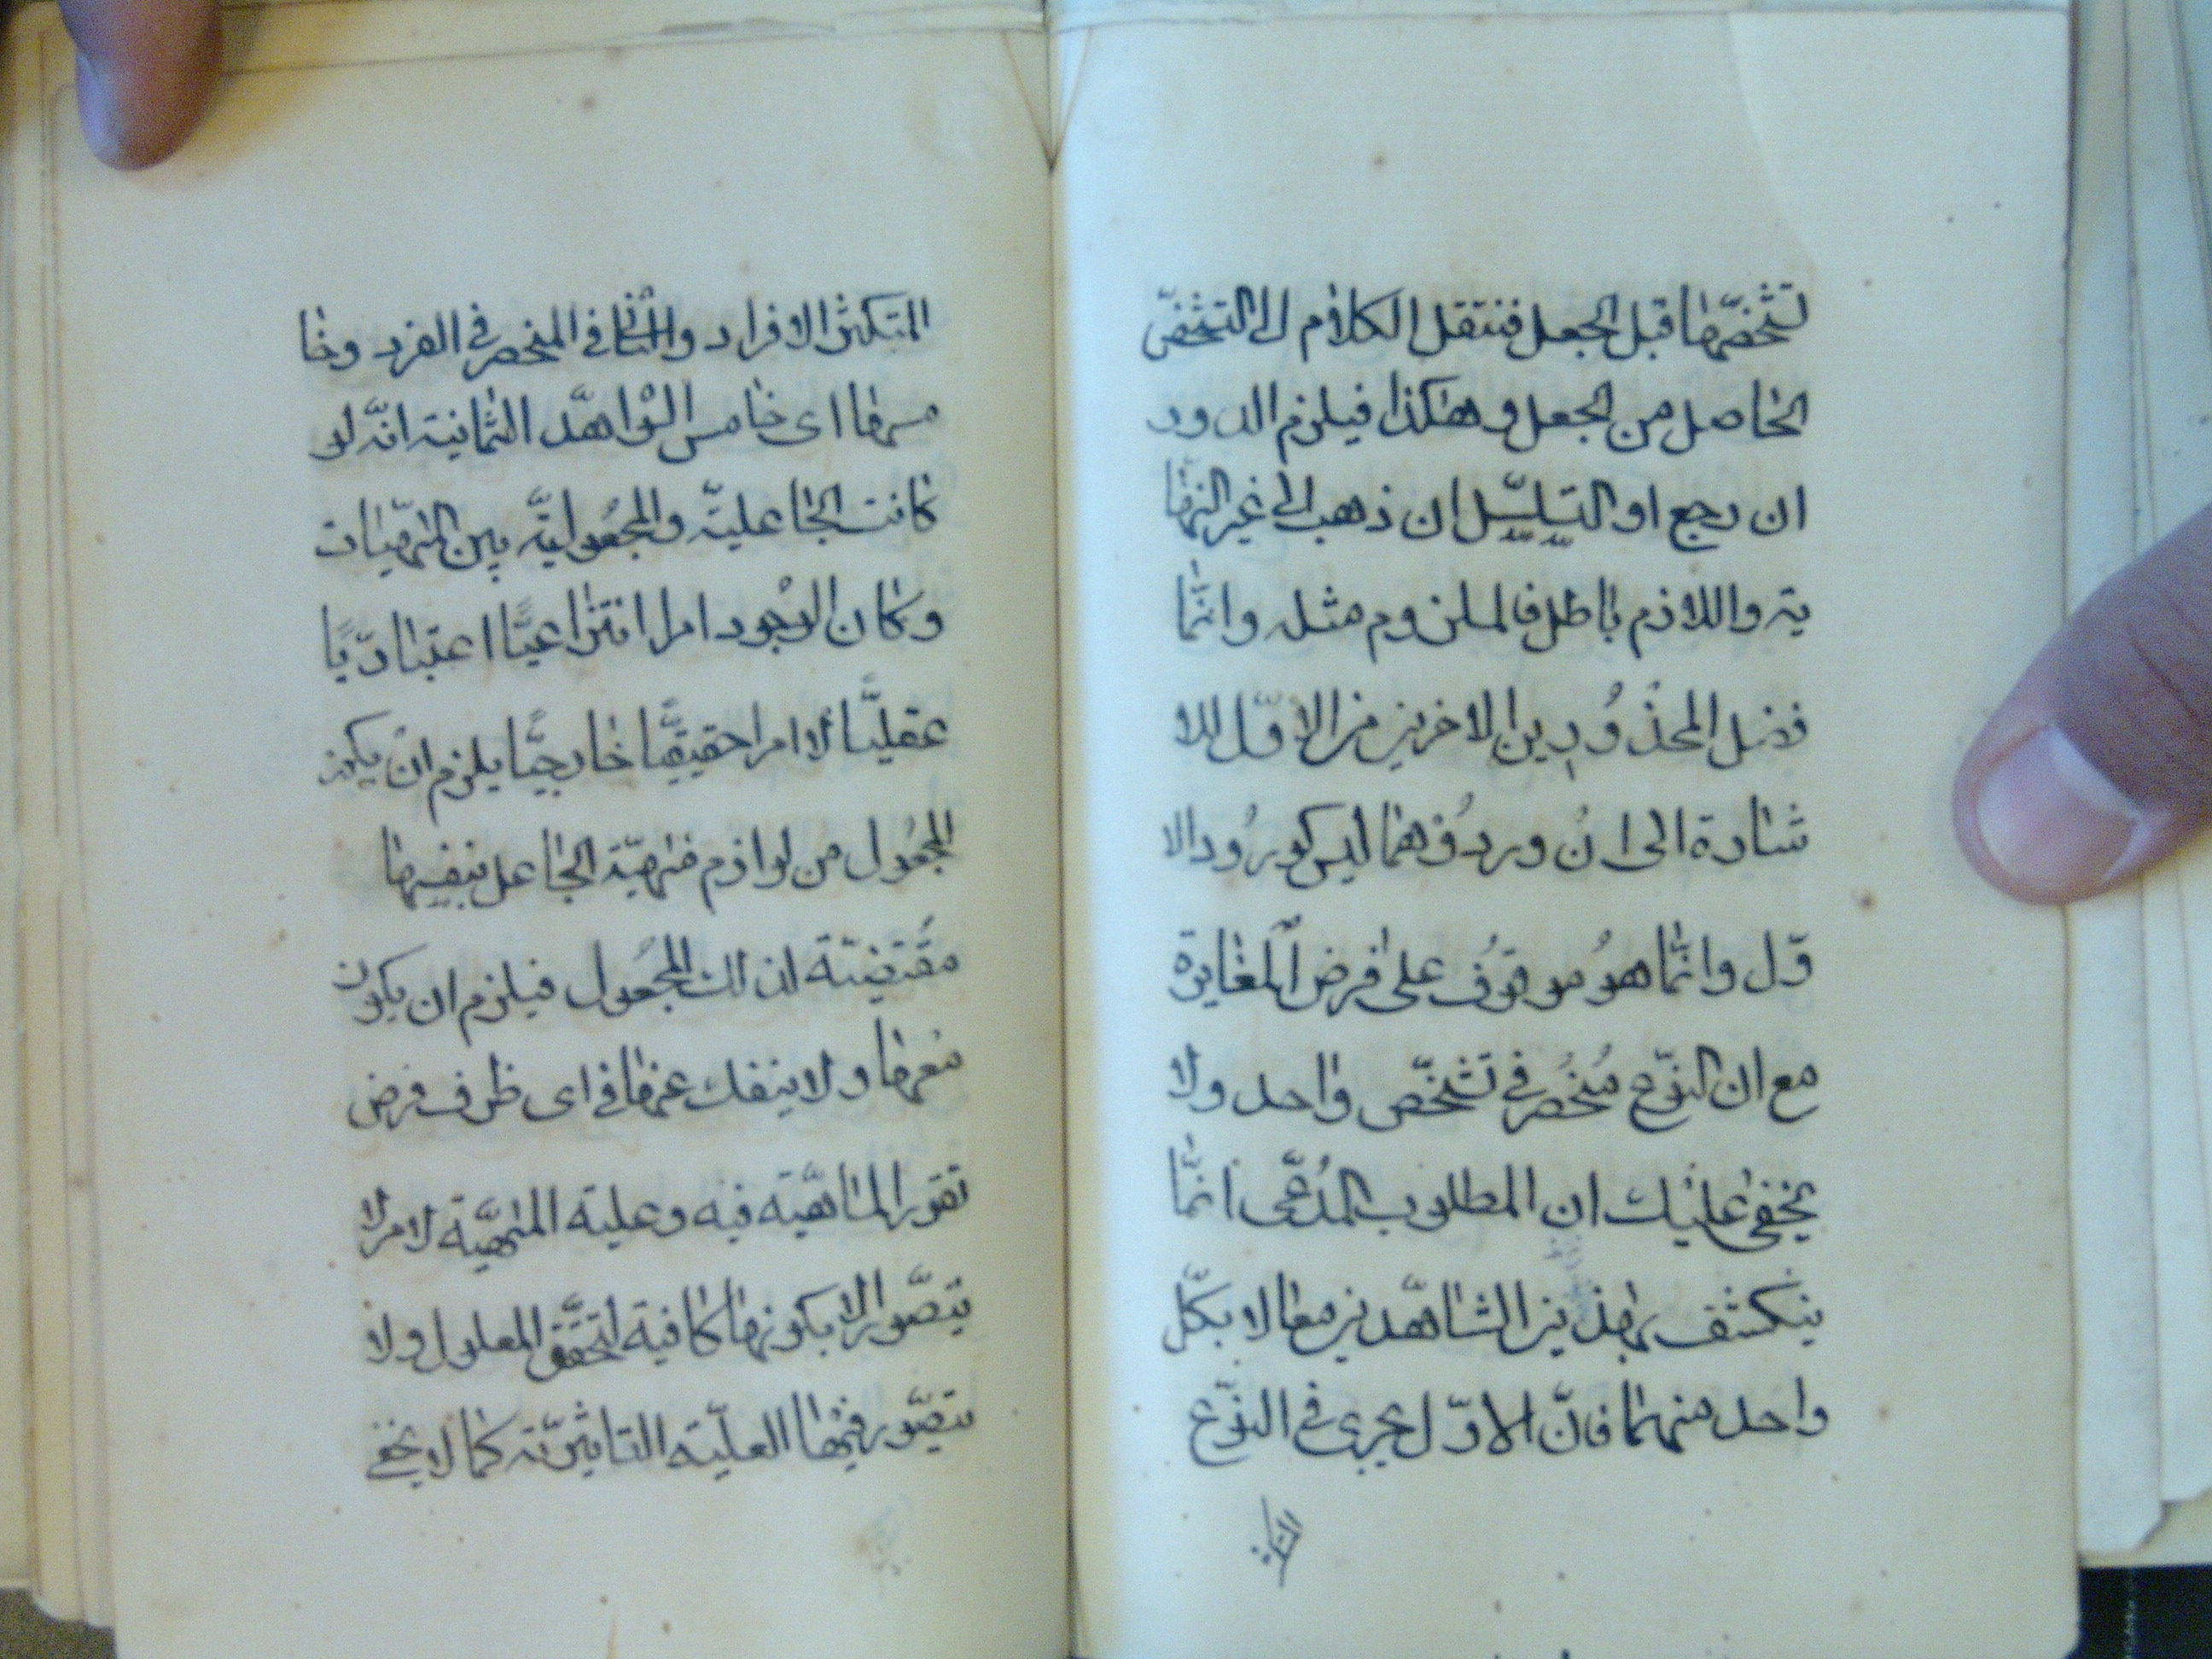 تشخّصها قبل الجعل فننتقل الكلام الى التشخّص
الحاصل من الجعل وهكذا فيلزم الدور
ان رجع او التسلسل ان ذهب الى غير النها
ية واللازم باطل فالملزوم مثله وانّما
فصل المحذورين الاخرين من الاوّل للا
شارة الى ان ورودهما ليس كورود الا
وّل وانّما هو موقوف على فرض المغايرة
مع ان النوع منحصر في تشخّص واحد ولا
يخفى عليك ان المطلوب المدّعى انّما
ينكشف بهذين الشاهدين معا لا بكلّ
واحد منهما فانّ الاوّل يجرى في النوع
المتكثر الافراد والثانى في المنحصر في الفرد وخا
مسها اى خامس الشواهد الثمانية انّه لو
كانت الجاعليّة والمجعوليّة بين المهيّات
وكان الوجود امرا انتزاعيّا اعتباريّا
عقليّا لا امرا حقيقيّا خارجيّا يلزم ان يكون
المجعول من لوازم مهيّة الجاعل بنفسها
مقتضية لذلك المجعول فيلزم ان يكون
معها ولا ينفك عنها في اى ظرف فرض
تقرر الماهيّة فيه وعلية المهيّة لامر لا
يتصّور الا بكونها كافية لتحقّق المعلول ولا
يتصّور فيها العليّة التاثيريّة كما لا يخفى